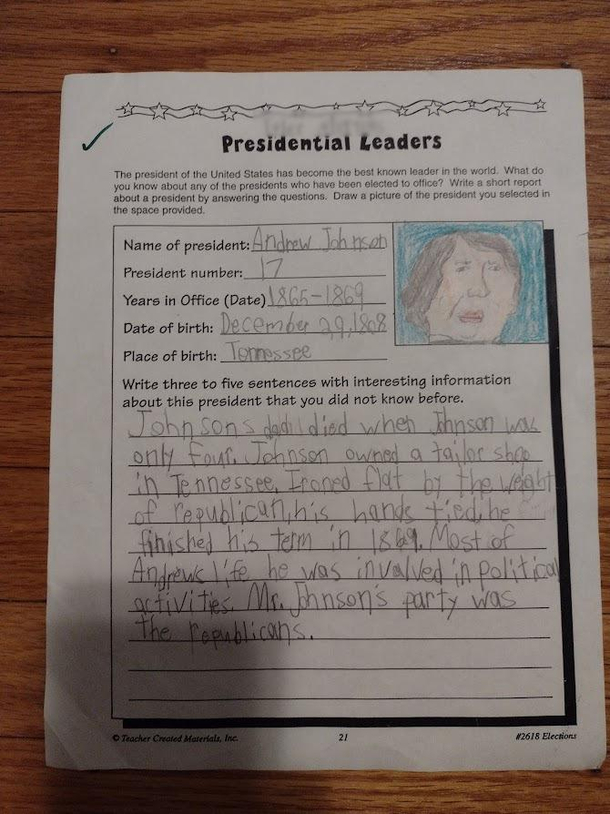 Presidential Leaders
The president of the United States has become the best known leader in the world. What do
you know about any of the presidents who have been elected to office? Write a short report
about a president by answering the questions. Draw a picture of the president you selected in
the space provided.
Name of president: Andrew Johnson
President number: 17
Years in Office (Date) 1865-1869
Date of birth: December 29, 1808
Place of birth: Tennessee
Write three to five sentences with interesting information
about this president that you did not know before.
Johnsons dad died when Johnson was
only four. Johnson owned a tailor shop
in Tennessee. Ironed flat by the weight
of republican, his hands tied, he
finished his term in 1869. Most of
Andrews life he was involved in political
activities. Mr. Johnson's party was
the republicans.
© Teacher Created Materials, Inc. 21 #2618 Elections